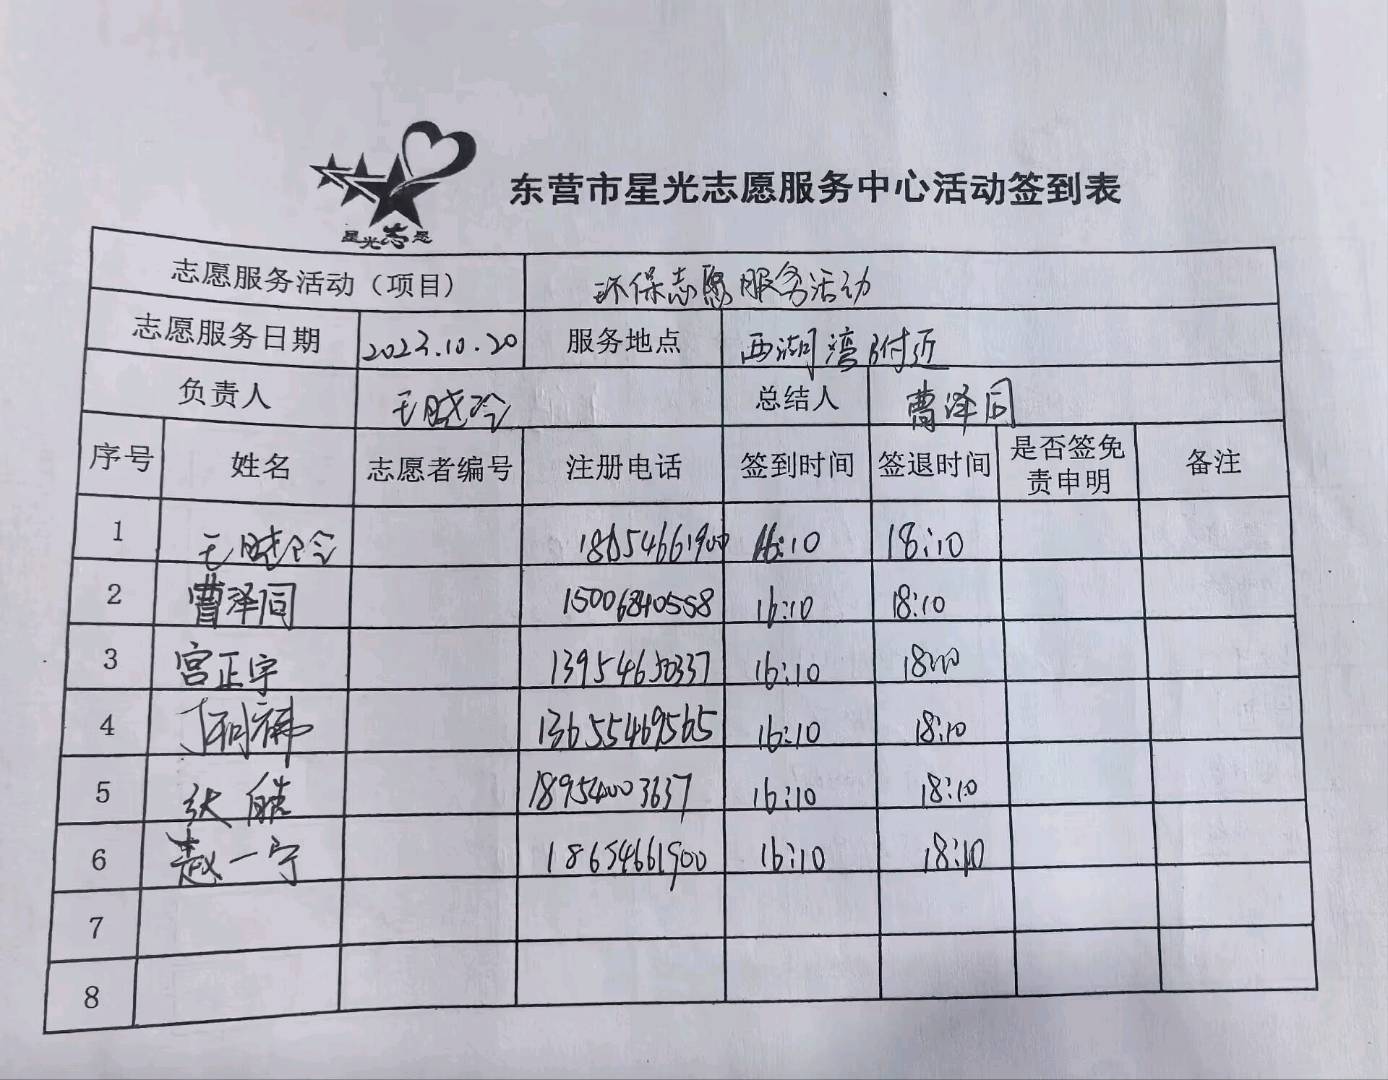 星光志愿
东营市星光志愿服务中心活动签到表
志愿服务活动（项目） 环保志愿服务活动
志愿服务日期 2023.10.20 服务地点 西湖湾附近
负责人 王晓玲 总结人 曹泽同
序号 姓名 志愿者编号 注册电话 签到时间 签退时间 是否签免责申明 备注
1 王晓玲 18654661900 16:10 18:10
2 曹泽同 15006840558 16:10 18:10
3 宫正宇 13954650337 16:10 18:10
4 13655469565 16:10 18:10
5 张皓 18954003637 16:10 18:10
6 赵一宁 18654661900 16:10 18:10
7
8